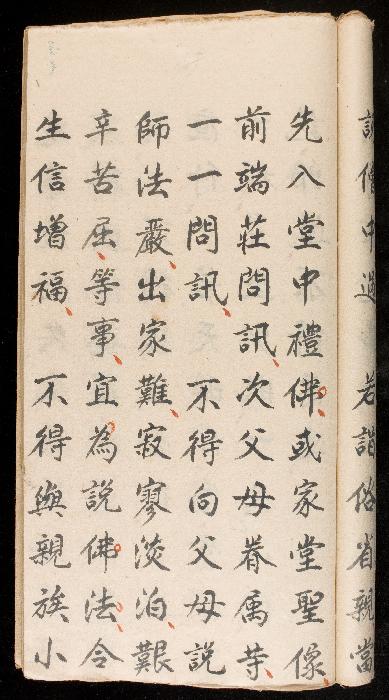 訶僧中過 若詣俗省親當
先入堂中禮佛或家堂聖像
前端莊問訊次父母眷属等
一一問訊 不得向父母說
師法嚴出家難寂寥淡泊艱
辛苦屈等事宜為說佛法令
生信增福 不得與親族小